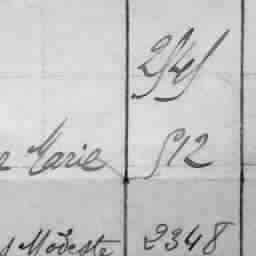 2545
Marie 512
Modeste 2348